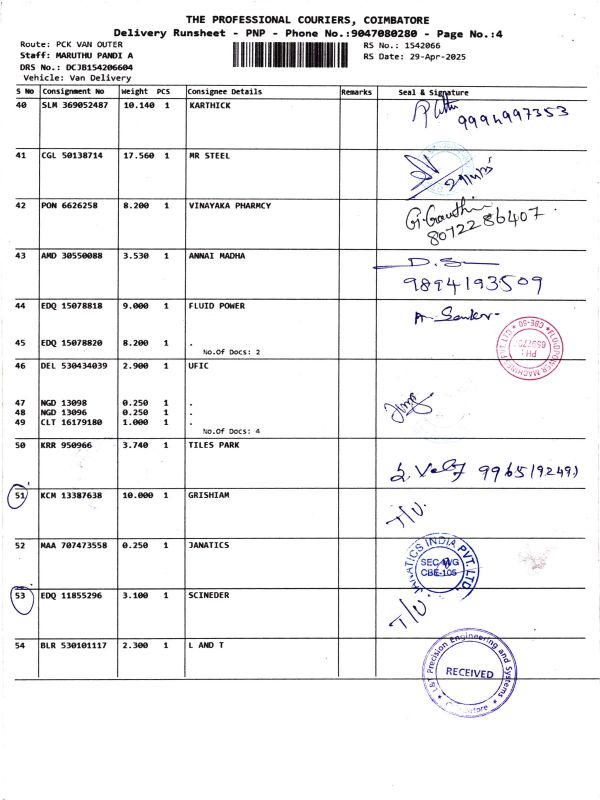 THE PROFESSIONAL COURIERS, COIMBATORE
Delivery Runsheet - PNP - Phone No.:9047080280 - Page No.:4
Route: PCK VAN OUTER
RS No.: 1542066
Staff: MARUTHU PANDI A
RS Date: 29-Apr-2025
DRS No.: DCJB154206604
Vehicle: Van Delivery
S No Consignment No Weight PCS Consignee Details Remarks Seal & Signature
40 SLM 369052487 10.140 1 KARTHICK
9994997353
41 CGL 50138714 17.560 1 MR STEEL
42 PON 6626258 8.200 1 VINAYAKA PHARMCY
8072286407
43 AMD 30550088 3.530 1 ANNAI MADHA
9894193509
44 EDQ 15078818 9.000 1 FLUID POWER
45 EDQ 15078820 8.200 1 .
No.Of Docs: 2
46 DEL 530434039 2.900 1 UFIC
47 NGD 13098 0.250 1 .
48 NGD 13096 0.250 1 .
49 CLT 16179180 1.000 1 .
No.Of Docs: 4
50 KRR 950966 3.740 1 TILES PARK
51 KCM 13387638 10.000 1 GRISHIAM
T/U.
52 MAA 707473558 0.250 1 JANATICS
JANATICS INDIA PVT. LTD.
SEC WG
CBE-105
53 EDQ 11855296 3.100 1 SCINEDER
T/U.
54 BLR 530101117 2.300 1 L AND T
L&T Precision Engineering and Systems
RECEIVED
Coimbatore